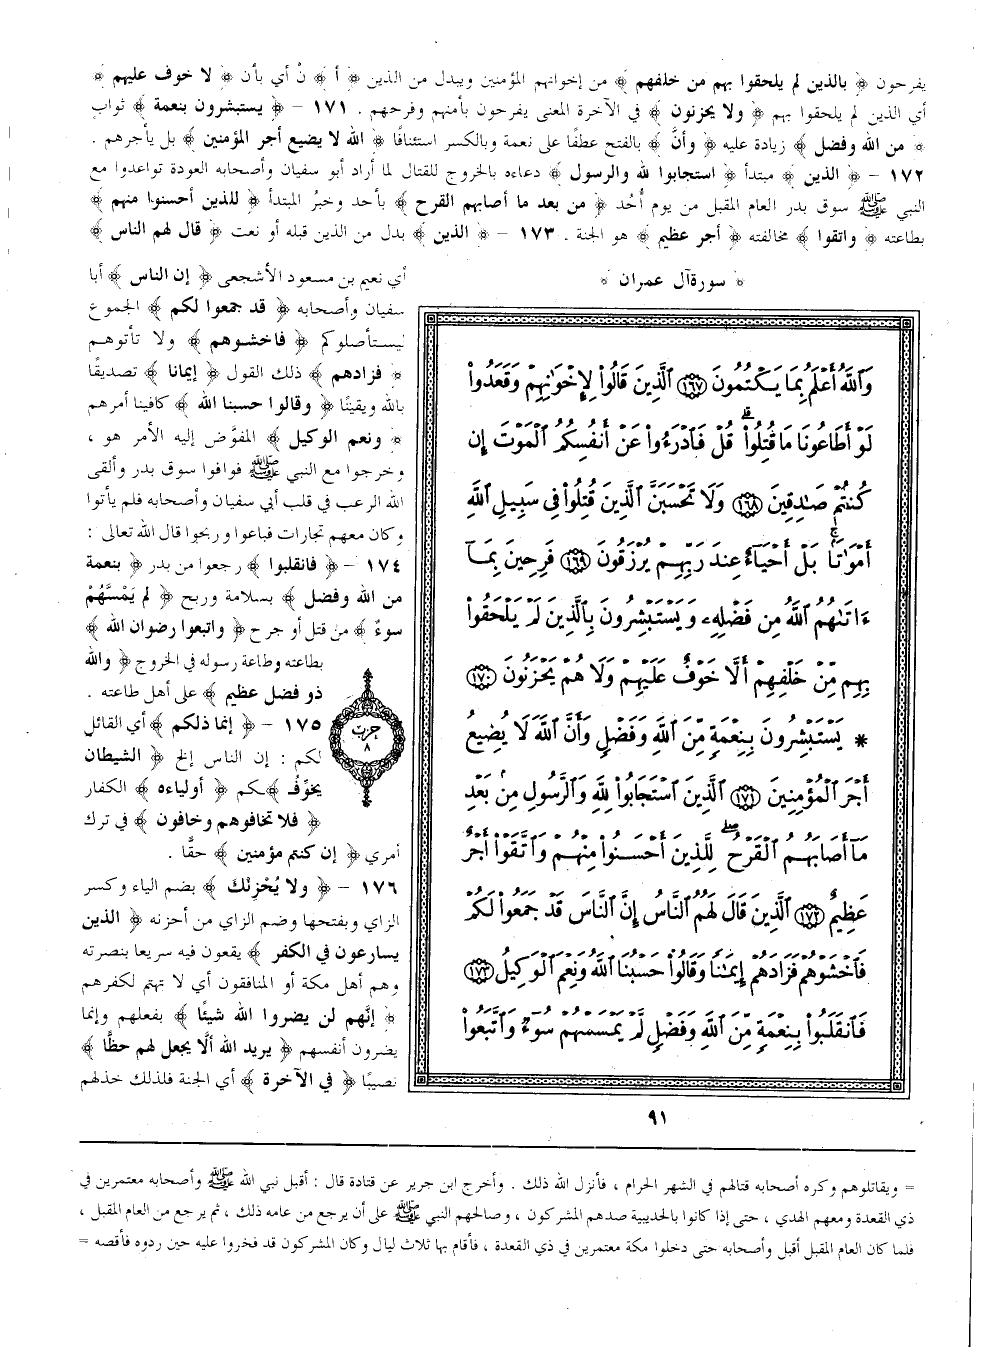 يفرحون ﴿ بالذين لم يلحقوا بهم من خلفهم ﴾ من إخوانهم المؤمنين ويبدل من الذين ﴿ أ ﴾ نْ أي بأن ﴿ لا خوف عليهم ﴾
أي الذين لم يلحقوا بهم ﴿ ولا يحزنون ﴾ في الآخرة المعنى يفرحون بأمنهم وفرحهم . ١٧١ - ﴿ يستبشرون بنعمة ﴾ ثواب
﴿ من الله وفضل ﴾ زيادة عليه ﴿ وأنَّ ﴾ بالفتح عطفًا على نعمة وبالكسر استئنافًا ﴿ الله لا يضيع أجر المؤمنين ﴾ بل يأجرهم .
١٧٢ - ﴿ الذين ﴾ مبتدأ ﴿ استجابوا لله والرسول ﴾ دعاءه بالخروج للقتال لما أراد أبو سفيان وأصحابه العودة تواعدوا مع
النبي ﷺ سوق بدر العام المقبل من يوم أُحُد ﴿ من بعد ما أصابهم القرح ﴾ بأحد وخبرُ المبتدأ ﴿ للذين أحسنوا منهم ﴾
بطاعته ﴿ واتقوا ﴾ مخالفته ﴿ أجر عظيم ﴾ هو الجنة . ١٧٣ - ﴿ الذين ﴾ بدل من الذين قبله أو نعت ﴿ قال لهم الناس ﴾
﴿ سورة آل عمران ﴾
وَٱللَّهُ أَعْلَمُ بِمَا يَكْتُمُونَ ١٦٧ ٱلَّذِينَ قَالُوا۟ لِإِخْوَٰنِهِمْ وَقَعَدُوا۟
لَوْ أَطَاعُونَا مَا قُتِلُوا۟ ۗ قُلْ فَٱدْرَءُوا۟ عَنْ أَنفُسِكُمُ ٱلْمَوْتَ إِن
كُنتُمْ صَٰدِقِينَ ١٦٨ وَلَا تَحْسَبَنَّ ٱلَّذِينَ قُتِلُوا۟ فِى سَبِيلِ ٱللَّهِ
أَمْوَٰتًۢا ۚ بَلْ أَحْيَآءٌ عِندَ رَبِّهِمْ يُرْزَقُونَ ١٦٩ فَرِحِينَ بِمَآ
ءَاتَىٰهُمُ ٱللَّهُ مِن فَضْلِهِۦ وَيَسْتَبْشِرُونَ بِٱلَّذِينَ لَمْ يَلْحَقُوا۟
بِهِم مِّنْ خَلْفِهِمْ أَلَّا خَوْفٌ عَلَيْهِمْ وَلَا هُمْ يَحْزَنُونَ ١٧٠
* يَسْتَبْشِرُونَ بِنِعْمَةٍ مِّنَ ٱللَّهِ وَفَضْلٍ وَأَنَّ ٱللَّهَ لَا يُضِيعُ
أَجْرَ ٱلْمُؤْمِنِينَ ١٧١ ٱلَّذِينَ ٱسْتَجَابُوا۟ لِلَّهِ وَٱلرَّسُولِ مِنۢ بَعْدِ
مَآ أَصَابَهُمُ ٱلْقَرْحُ ۚ لِلَّذِينَ أَحْسَنُوا۟ مِنْهُمْ وَٱتَّقَوْا۟ أَجْرٌ
عَظِيمٌ ١٧٢ ٱلَّذِينَ قَالَ لَهُمُ ٱلنَّاسُ إِنَّ ٱلنَّاسَ قَدْ جَمَعُوا۟ لَكُمْ
فَٱخْشَوْهُمْ فَزَادَهُمْ إِيمَٰنًا وَقَالُوا۟ حَسْبُنَا ٱللَّهُ وَنِعْمَ ٱلْوَكِيلُ ١٧٣
فَٱنقَلَبُوا۟ بِنِعْمَةٍ مِّنَ ٱللَّهِ وَفَضْلٍ لَّمْ يَمْسَسْهُمْ سُوٓءٌ وَٱتَّبَعُوا۟
أي نعيم بن مسعود الأشجعي ﴿ إن الناس ﴾ أبا
سفيان وأصحابه ﴿ قد جمعوا لكم ﴾ الجموع
ليستأصلوكم ﴿ فاخشوهم ﴾ ولا تأتوهم
﴿ فزادهم ﴾ ذلك القول ﴿ إيمانا ﴾ تصديقًا
بالله ويقينًا ﴿ وقالوا حسبنا الله ﴾ كافينا أمرهم
﴿ ونعم الوكيل ﴾ المفوَّض إليه الأمر هو ،
وخرجوا مع النبي ﷺ فوافوا سوق بدر وألقى
الله الرعب في قلب أبي سفيان وأصحابه فلم يأتوا
وكان معهم تجارات فباعوا وربحوا قال الله تعالى :
١٧٤ - ﴿ فانقلبوا ﴾ رجعوا من بدر ﴿ بنعمة
من الله وفضل ﴾ بسلامة وربح ﴿ لم يَمْسَسْهُمْ
سوءٌ ﴾ من قتل أو جرح ﴿ واتبعوا رضوان الله ﴾
بطاعته وطاعة رسوله في الخروج ﴿ والله
ذو فضل عظيم ﴾ على أهل طاعته .
١٧٥ - ﴿ إنما ذلكم ﴾ أي القائل
لكم : إن الناس إلخ ﴿ الشيطان
يخوِّفُ ﴾ كم ﴿ أولياءه ﴾ الكفار
﴿ فلا تخافوهم وخافون ﴾ في ترك
أمري ﴿ إن كنتم مؤمنين ﴾ حقًّا .
١٧٦ - ﴿ ولا يُحْزِنْكَ ﴾ بضم الياء وكسر
الزاي وبفتحها وضم الزاي من أحزنه ﴿ الذين
يسارعون في الكفر ﴾ يقعون فيه سريعا بنصرته
وهم أهل مكة أو المنافقون أي لا تهتم لكفرهم
﴿ إنَّهم لن يضروا الله شيئًا ﴾ بفعلهم وإنما
يضرون أنفسهم ﴿ يريد الله ألَّا يجعل لهم حظًّا ﴾
نصيبًا ﴿ في الآخرة ﴾ أي الجنة فلذلك خذلهم
حزب
٨
٩١
= ويقاتلوهم وكره أصحابه قتالهم في الشهر الحرام ، فأنزل الله ذلك . وأخرج ابن جرير عن قتادة قال : أقبل نبي الله ﷺ وأصحابه معتمرين في
ذي القعدة ومعهم الهدي ، حتى إذا كانوا بالحديبية صدهم المشركون ، وصالحهم النبي ﷺ على أن يرجع من عامه ذلك ، ثم يرجع من العام المقبل ،
فلما كان العام المقبل أقبل وأصحابه حتى دخلوا مكة معتمرين في ذي القعدة ، فأقام بها ثلاث ليال وكان المشركون قد فخروا عليه حين ردوه فأقصه =